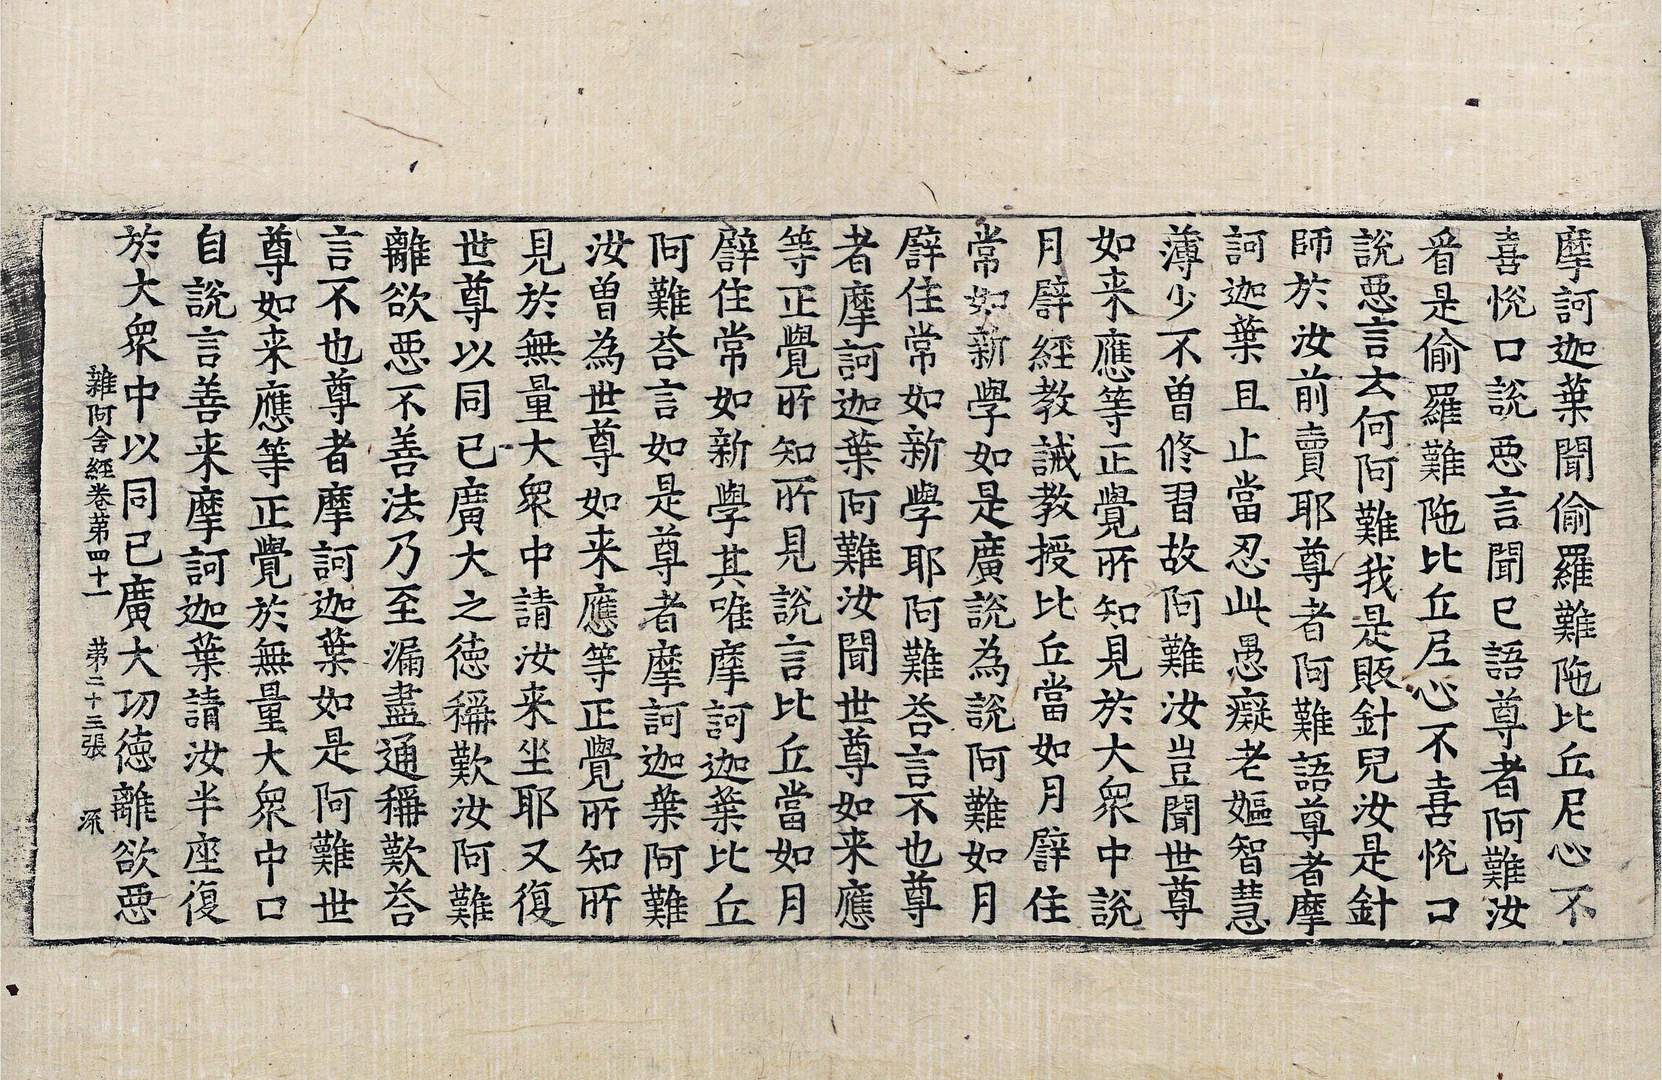 摩訶迦葉聞偷羅難陁比丘尼心不
喜悅口說惡言聞已語尊者阿難汝
看是偷羅難陁比丘尼心不喜悅口
說惡言云何阿難我是販針兒汝是針
師於汝前賣耶尊者阿難語尊者摩
訶迦葉且止當忍此愚癡老嫗智慧
薄少不曾修習故阿難汝豈聞世尊
如来應等正覺所知見於大衆中說
月譬經教誡教授比丘當如月譬住
常如新學如是廣說為說阿難如月
譬住常如新學耶阿難荅言不也尊
者摩訶迦葉阿難汝聞世尊如来應
等正覺所知所見說言比丘當如月
譬住常如新學其唯摩訶迦葉比丘
阿難荅言如是尊者摩訶迦葉阿難
汝曽為世尊如来應等正覺所知所
見於無量大衆中請汝来坐耶又復
世尊以同已廣大之德稱歎汝阿難
離欲惡不善法乃至漏盡通稱歎荅
言不也尊者摩訶迦葉如是阿難世
尊如来應等正覺於無量大衆中口
自說言善来摩訶迦葉請汝半座復
於大衆中以同已廣大功德離欲惡
雜阿含經卷第四十一 第二十三張 流